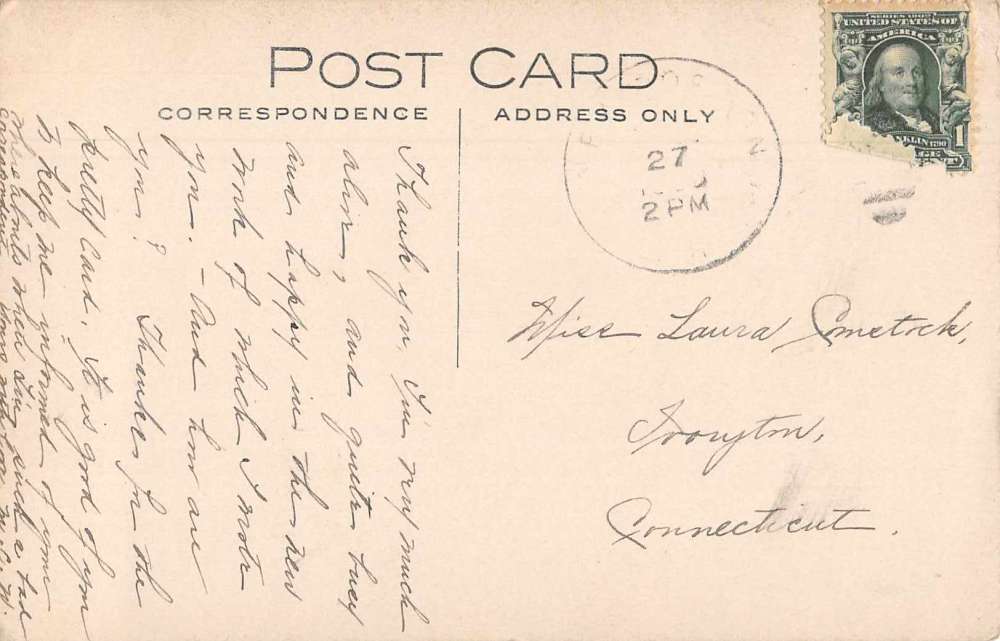 POST CARD
CORRESPONDENCE
ADDRESS ONLY
SERIES 1902
UNITED STATES OF
AMERICA
FRANKLIN 1790
1
CENT
27
2 PM
Miss Laura Comstock,
Ivoryton,
Connecticut.
Thank you, I'm very much
alive, and quite busy
and happy in the new
work of which I wrote
you. - And how are
you? Thanks for the
pretty card. It is good of you
to keep me informed of your
whereabouts when I'm such a bad
correspondent. M. E. W.